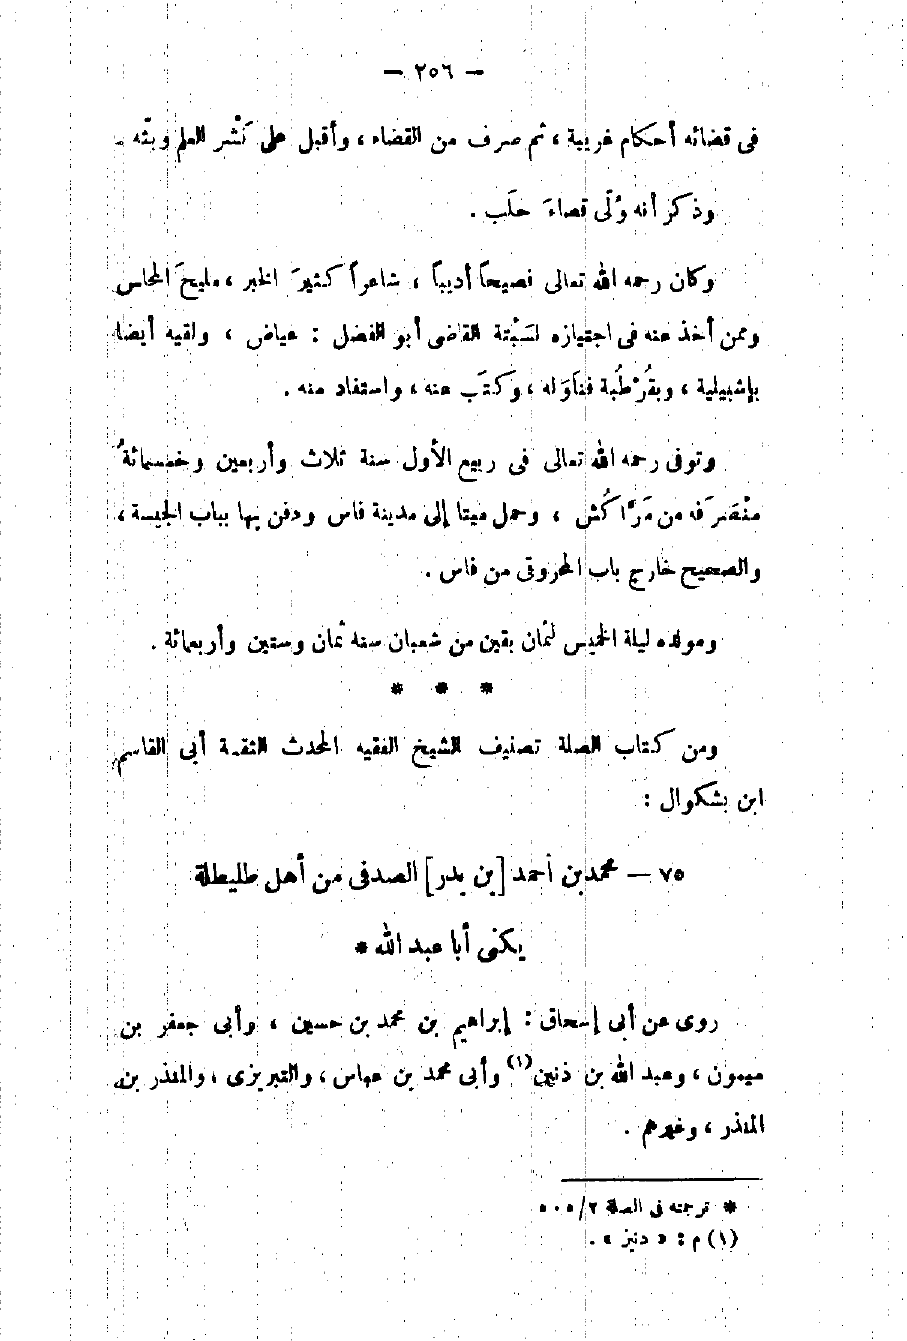 — ٢٥٦ —
فى قضائه أحكام غريبة ، ثم صرف من القضاء ، وأقبل على نَشْر العلم وبَثّه .
وذكر أنه وُلّى قصاءَ حلَب .
وكان رحمه الله تعالى فصيحاً أديباً ، شاعراً كثيرَ الخبر ، مليحَ المحاس
وممن أخذ عنه فى اجتيازه لسَبْتة القاضى أبو الفضل : عياض ، ولقيه أيضا
بإشبيلية ، وبقُرْطُبة فناوَله ، وكتَب عنه ، واستفاد منه .
وتوفى رحمه الله تعالى فى ربيع الأول سنة ثلاث وأربعين وخمسمائة ُ
منْصَرَفه من مَرَّاكُش ، وحمل ميتا إلى مدينة فاس ودفن بها بباب الجيسة ،
والصحيح خارج باب المحروق من فاس .
ومولده ليلة الخميس لثمان بقين من شعبان سنه ثمان وستين وأربعمائة .
* * *
ومن كتاب الصلة تصنيف الشيخ الفقيه المحدث الثقة أبى القاسم
ابن بشكوال :
٧٥ — محمد بن أحمد [بن بدر] الصدفى من أهل طليطلة
يكنى أبا عبد الله *
روى عن أبى إسحاق : إبراهيم بن محمد بن حسين ، وأبى جعفر بن
ميمون ، وعبد الله بن ذنين (١) وأبى محمد بن عباس ، والتبريزى ، والمنذر بن
المنذر ، وغيرهم .
* ترجمته فى الصلة ٥٠٥/٢
(١) م : « دنيز » .